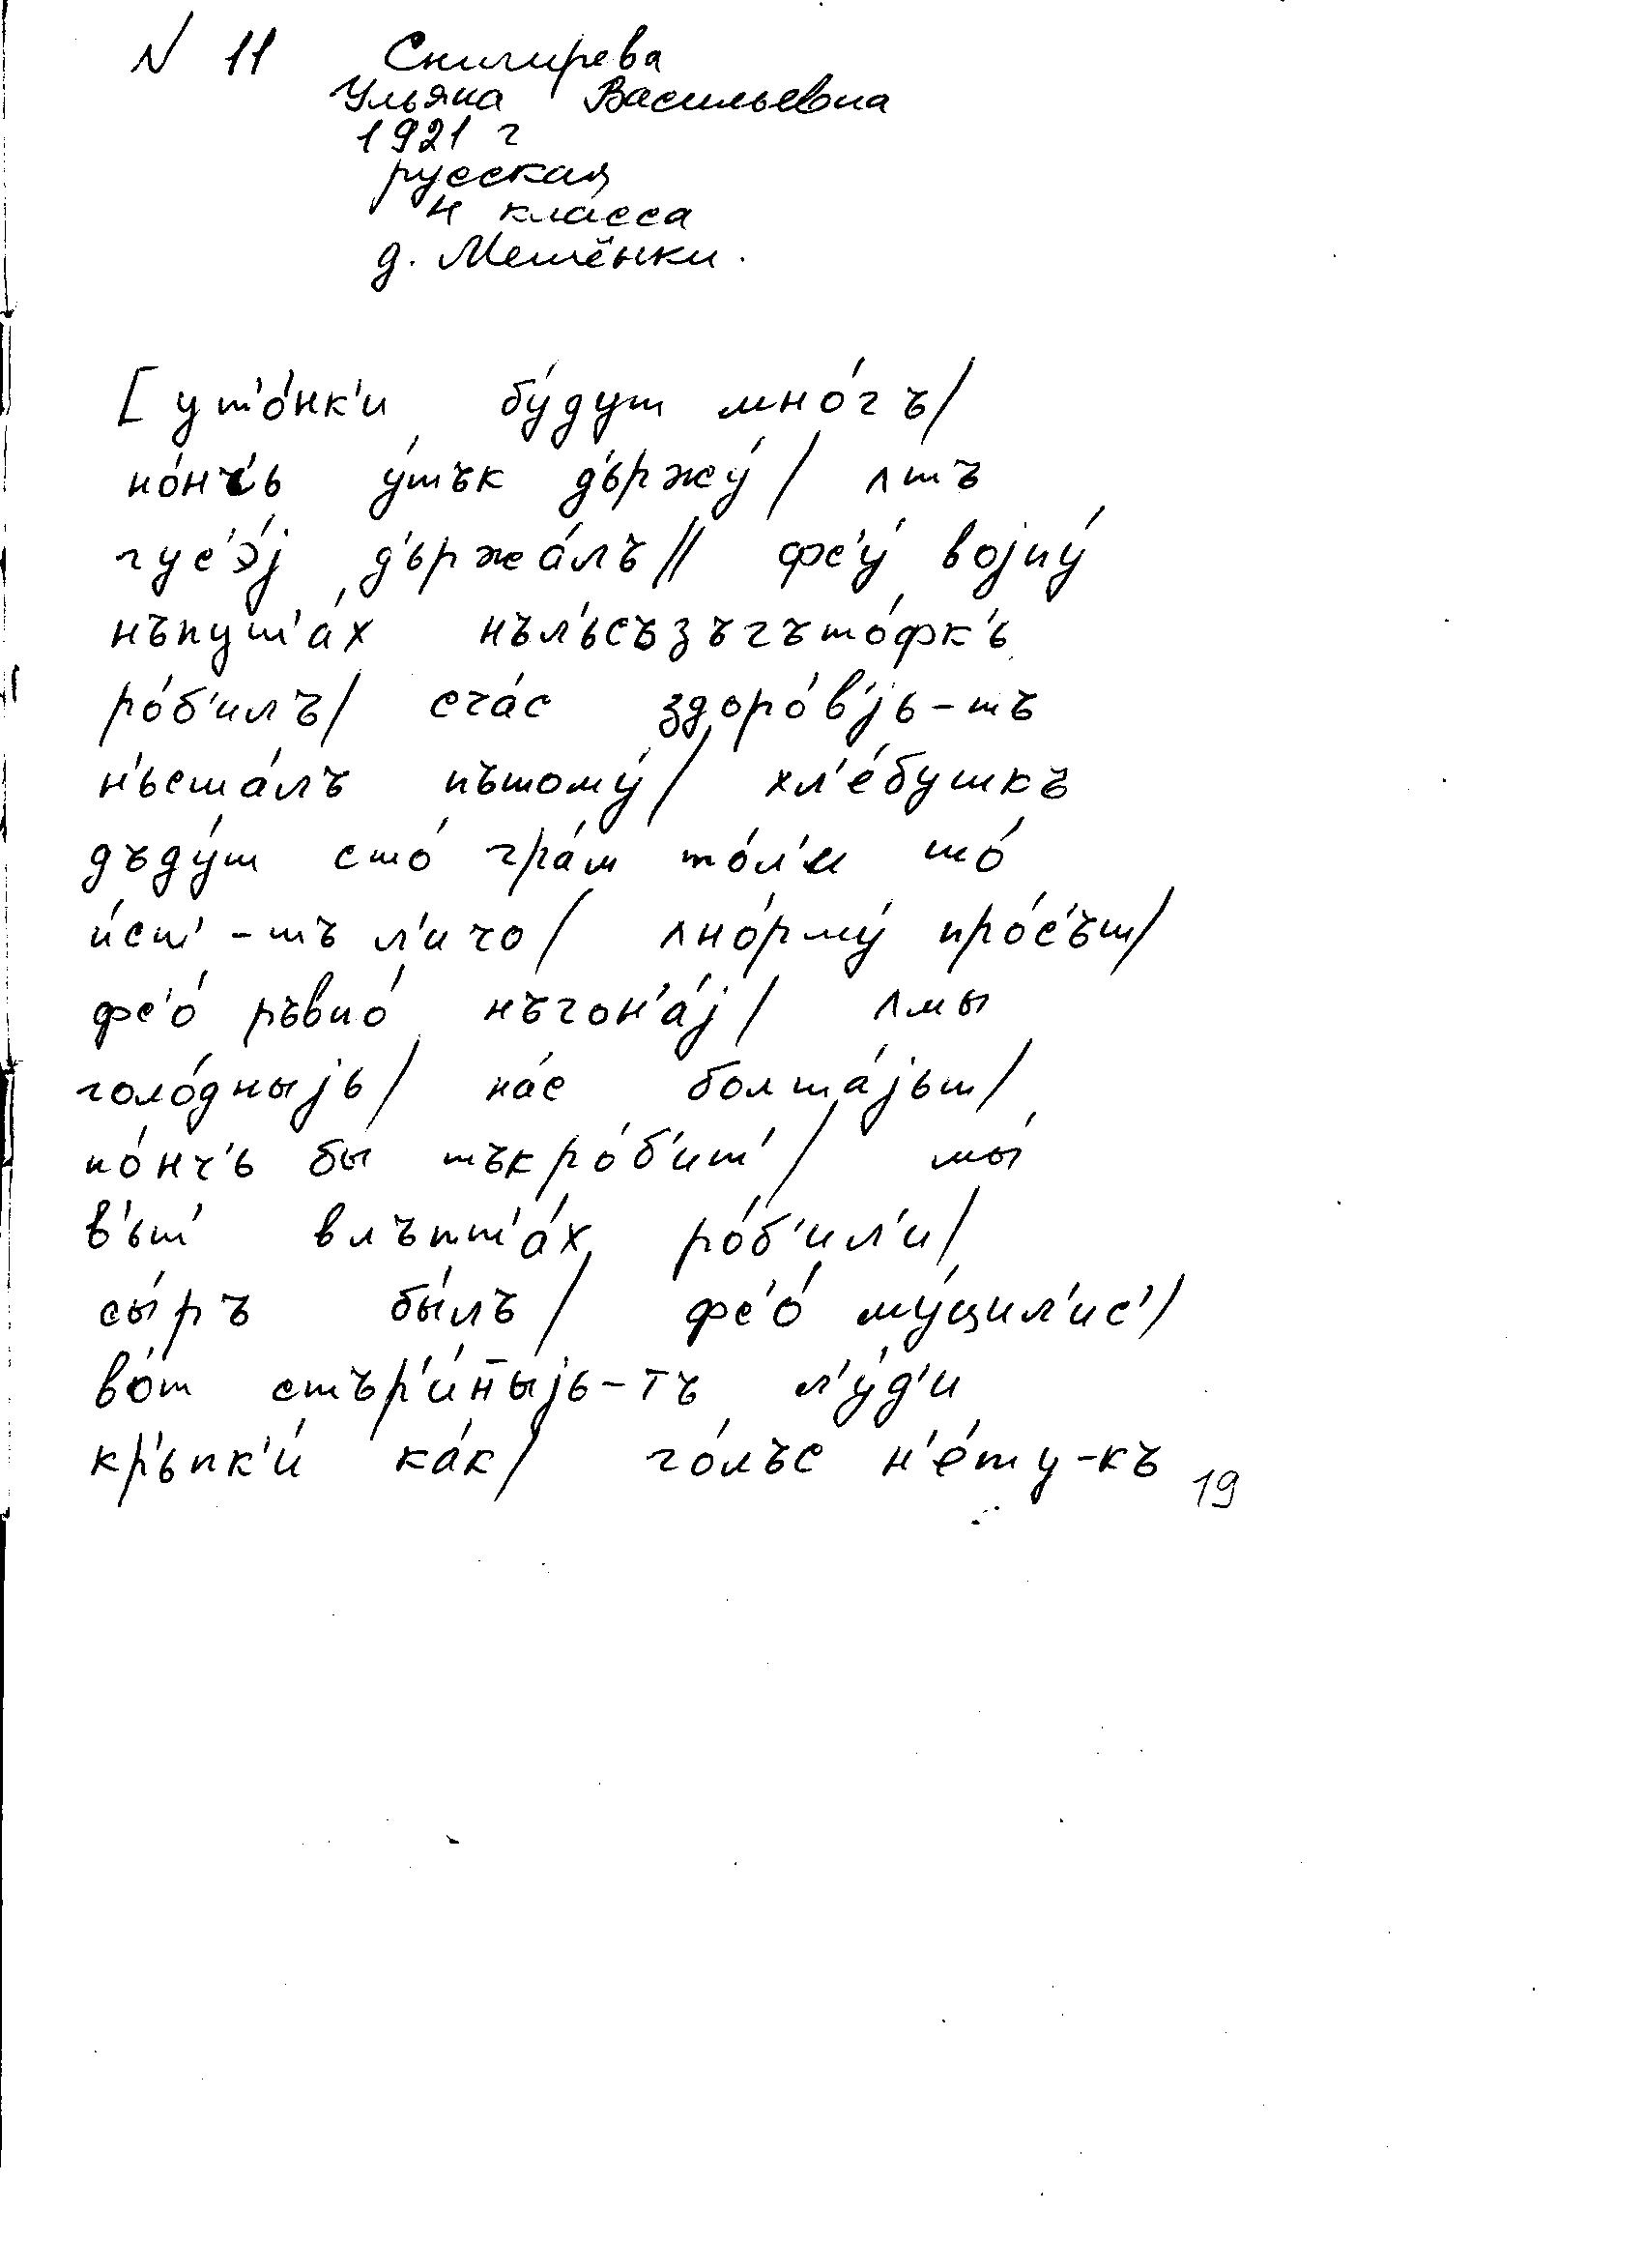 N 11 Снигирева
Ульяна Васильевна
1921 г
русская
4 класса
д. Мешёнки.
[ ут'о́нк'и бу́дут мно́гъ/
но́нч'ь у́тък д'ьржу́/ ʌтъ
гус'э́j д'ьржа́лъ// фс'у́ воjну́
нъпут'а́х нъл'ьсъзъгъто́фк'ь
ро́б'илъ/ сча́с здоро́в'jь-тъ
н'ьста́лъ пътому́/ хл'е́бушкъ
дъду́т сто́ гра́м то́л'и то́
и́ст'-тъ л'ичо/ ʌно́рму́ про́с'ът/
фс'о́ ръвно́ нъгон'а́j/ ʌмы
голо́дныjь/ на́с болта́jьт/
но́нч'ь бы тъкро́б'ит'/ мы́
в'ьт' влъпт'а́х ро́б'ил'и/
сы́ръ бы́лъ/ фс'о́ му́цил'ис'/
во́т стър'и́н̄ыjь-тъ л'у́д'и
кр'ьпк'и́ ка́к/ го́лъс н'е́ту-къ
19